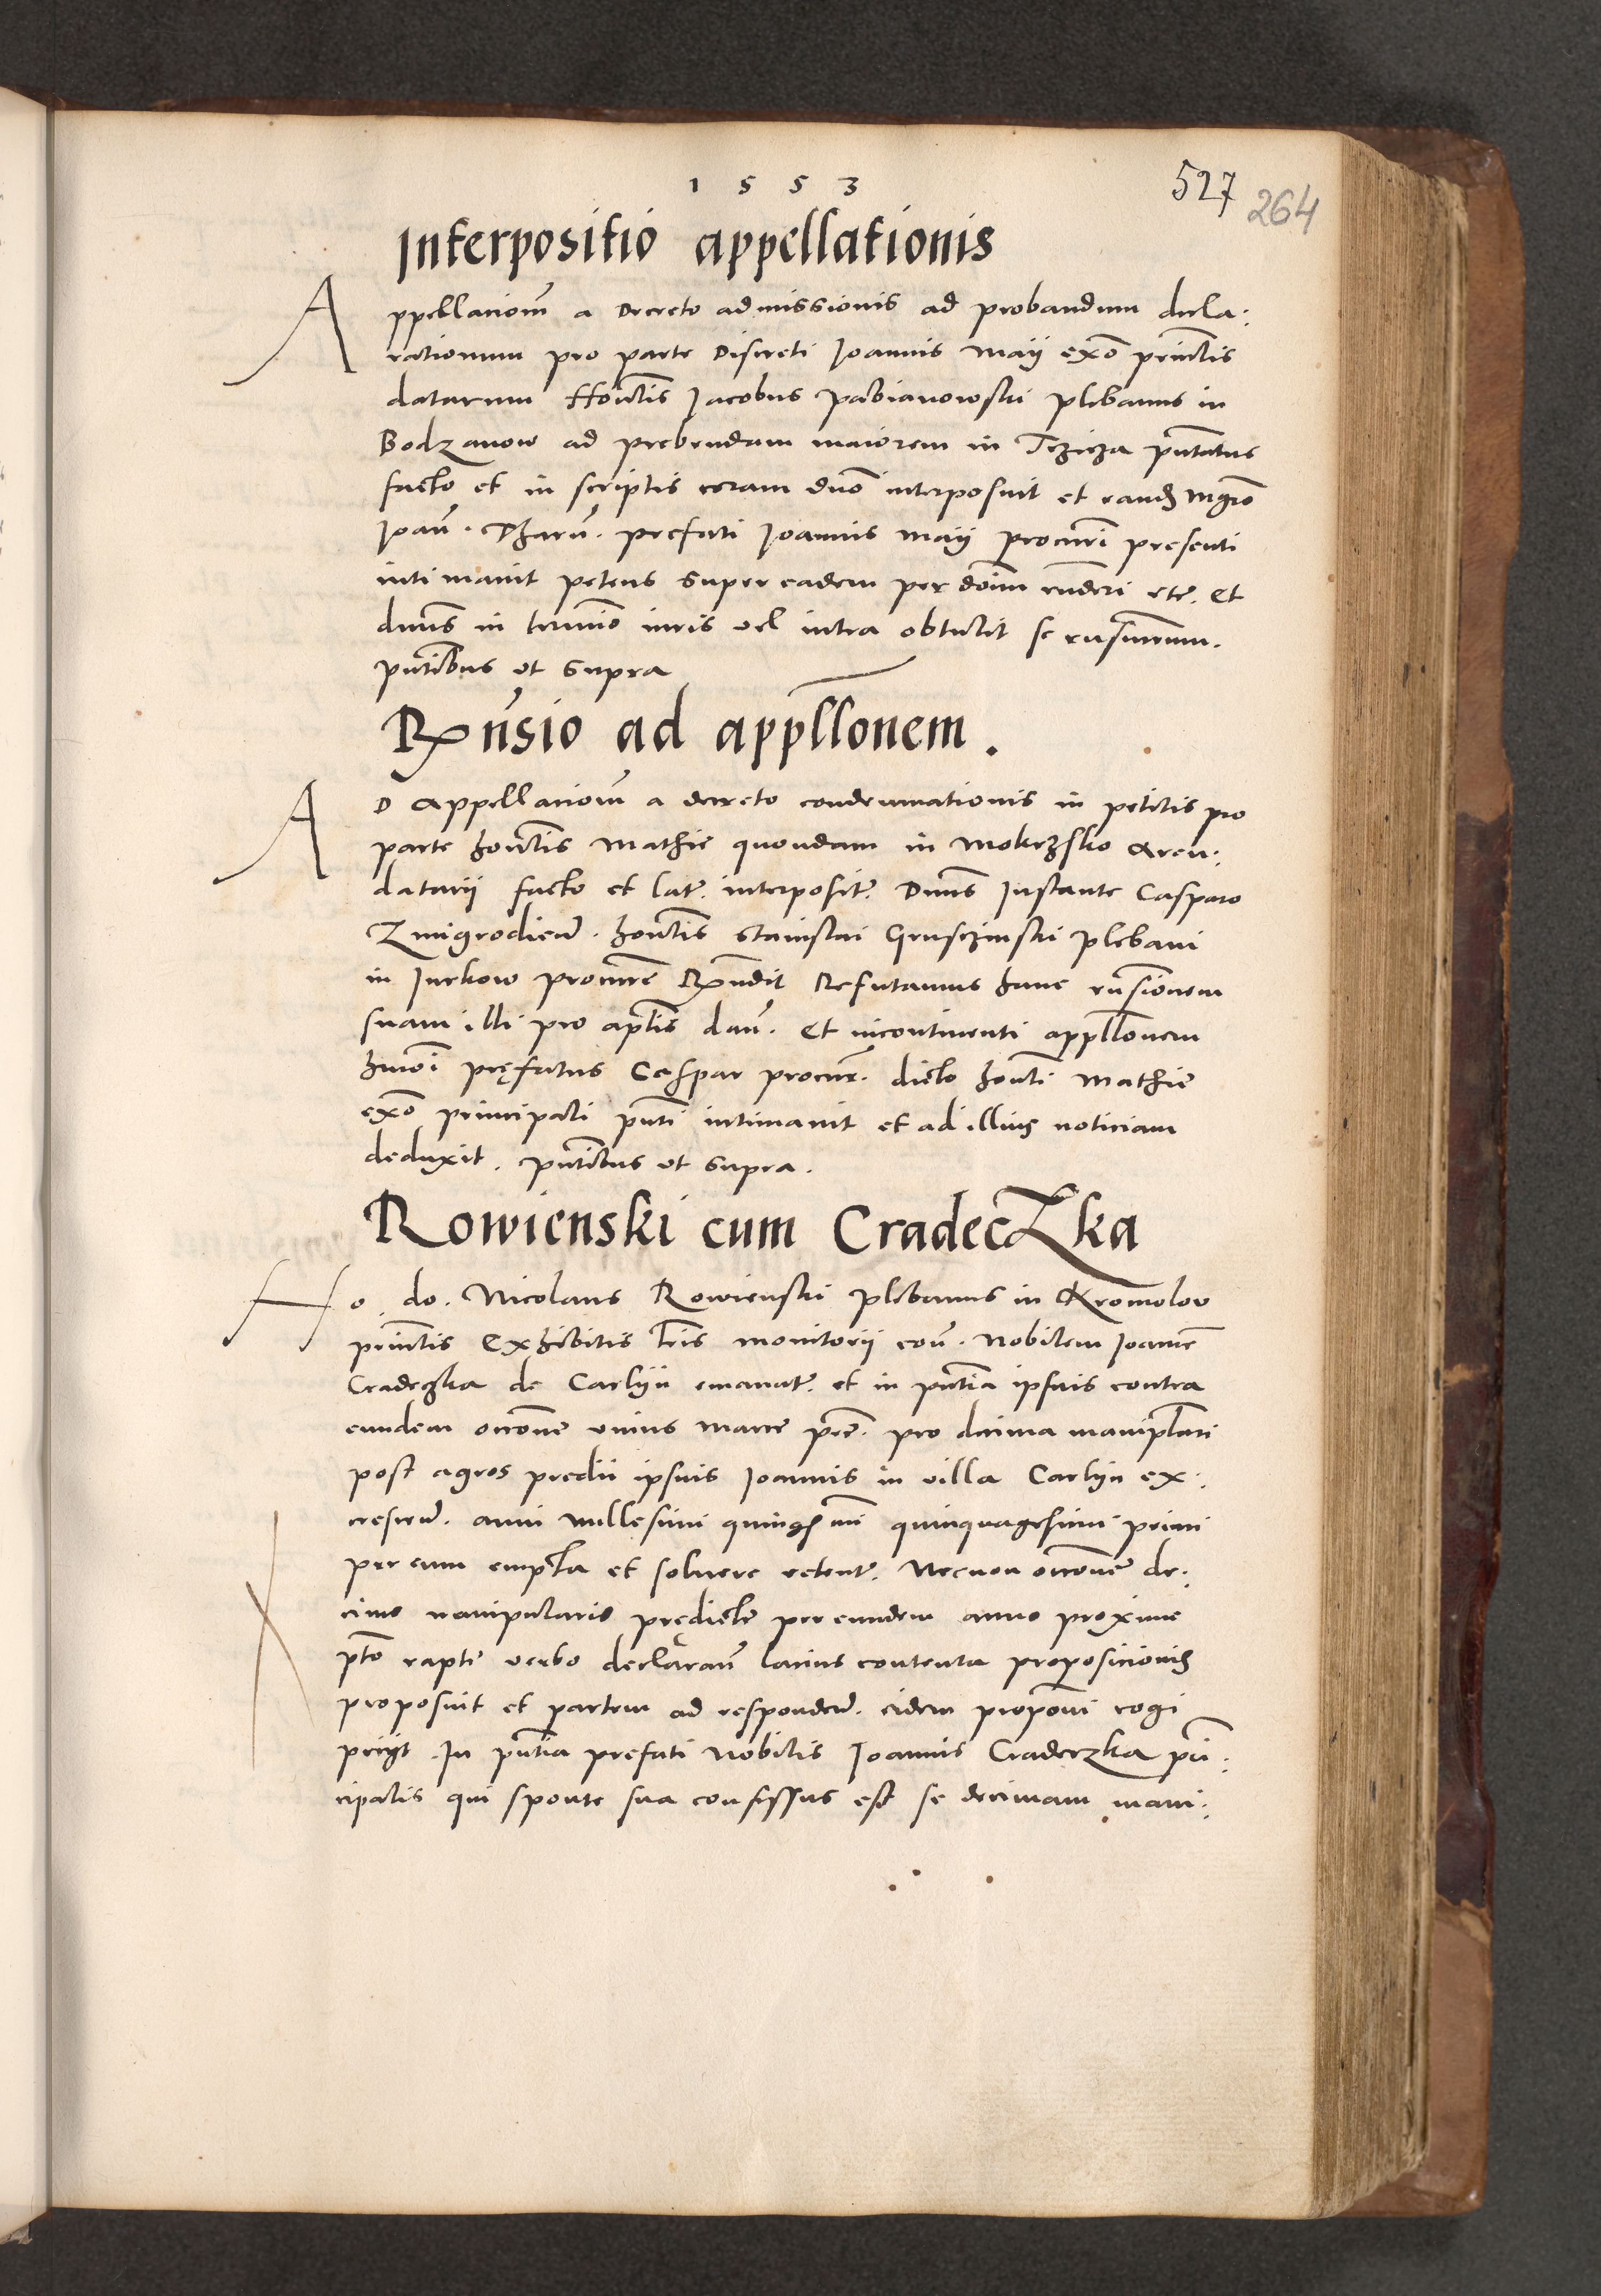 1 5 5 3
527 264
Interpositio appellationis
Appellacionem a Decreto admissionis ad probandum decla:
rationum pro parte Discreti Joannis Maij exõ prinĉtis
datarum Honĉtis Jacobus Pabianowski plebanus in
Bodzanow ad prebendam maiorem in Tczicza pñtatus
facto et in scriptis coram dnõ interposuit et eandẽ Mgrõ
Joañ. prefati Joannis Maij procurĩ presenti
intimavit petens super eadem per dõim rñderi etc. Et
dnus in termĩo iuris vel intra obtulit se rñsurum.
pñtibus ut supra
Rñsio ad appllonem.
AD Appellacionẽ a decreto condemnationis in petitis pro
parte honĉtis Mathie quondam in Mokrzsko Aren:
datarii facto et lat. interposit. Dnus Instante Casparo
Zmigrodicen. honĉtis Stanislai Gruszczinski plebani
in Jurkow procurẽ Rñdit Refutamus hanc rñsionem
suam illi pro aplis dañ. Et incontinenti appllonem
hmõi pręfatus Caspar procur. dicto honĉti Mathie
exõ principali pñti intimavit et ad illius noticiam
deduxit. pñtibus ut supra.
Rowienski cum CradecZka
Ho. do. Nicolaus Rowienski plebanus in Kromolow
prinĉtis Exhibitis lris monitorii coñ. Nobilem Joannẽ
Cradeczka de Carlyn emanat. et in pñtia ipsius contra
eundem occõne unius marce pec. pro decima manipulari
post agros predii ipsius Joannis in villa Carlyn ex:
crescen. anni millesimi quingẽmi quinquagesimi primi
per eum empta et solvere retent. Necnon occõne de:
cime manipularis prędicte per eundem anno proxime
pto rapte verbo declarañ lacius contenta proposicionis
proposuit et partem ad responden. eidem proponi cogi
peciit. In pñtia prefati Nobilis Joannis Craderzka prĩ:
cipalis qui sponte sua confessus est se decimam mani: